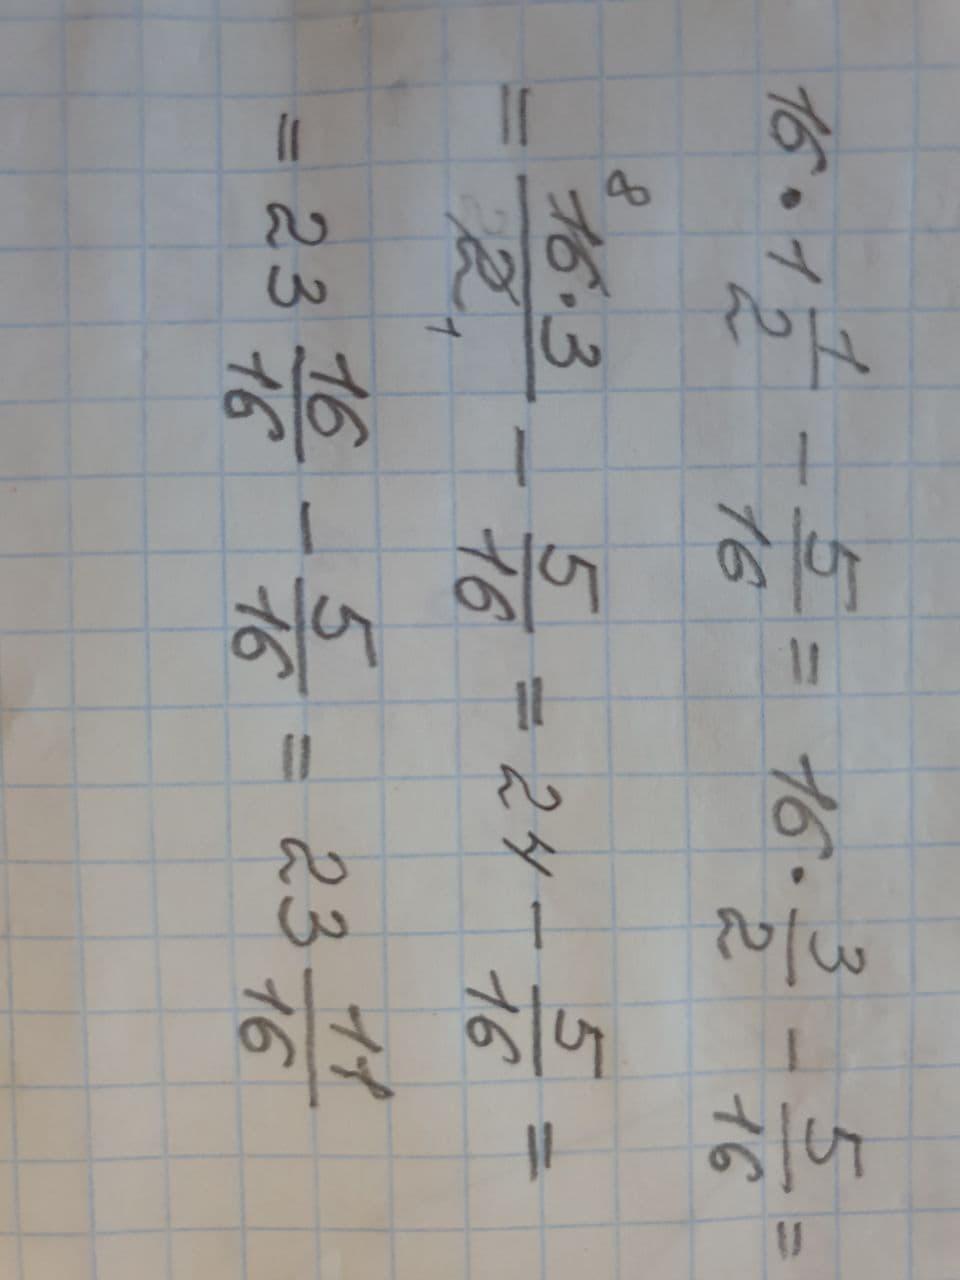 16 · 1 1/2 - 5/16 = 16 · 3/2 - 5/16 =
= (16 · 3)/2 - 5/16 = 24 - 5/16 = 8 1
= 23 16/16 - 5/16 = 23 11/16